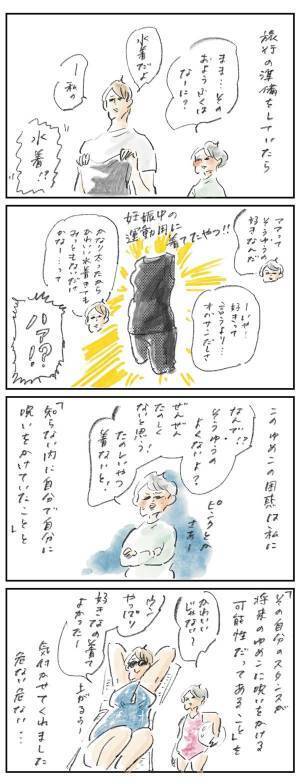 旅行の準備をしていたら
まま…その
およふくは
なーに？
水着だよ
ー私の
水着!?
ママって
そうゆうの
好きなんだ
妊娠中の
運動用に
着てたやつ!!
ーいや…
好きって
言うより…
かなり太ったから
かわいい水着着ても
みっともないだけ
かな…って
ハア!?
このゆめこの困惑は私に
なんで!?
そうゆうの
よくないよ？
ぜんぜん
たのしく
ないと思う！
たのしいやつ
着ないと！
ピンクとか
さぁー
「知らない内に自分で自分に
呪いをかけていたこと」と
「その自分のスタンスが
将来のゆめこに呪いをかける
可能性だってあること」を
かわいい
じゃない？
ウン
やっぱり
好きなの着て
よかったー
上がるぅー！
気付かせてくれました
危ない危ない…